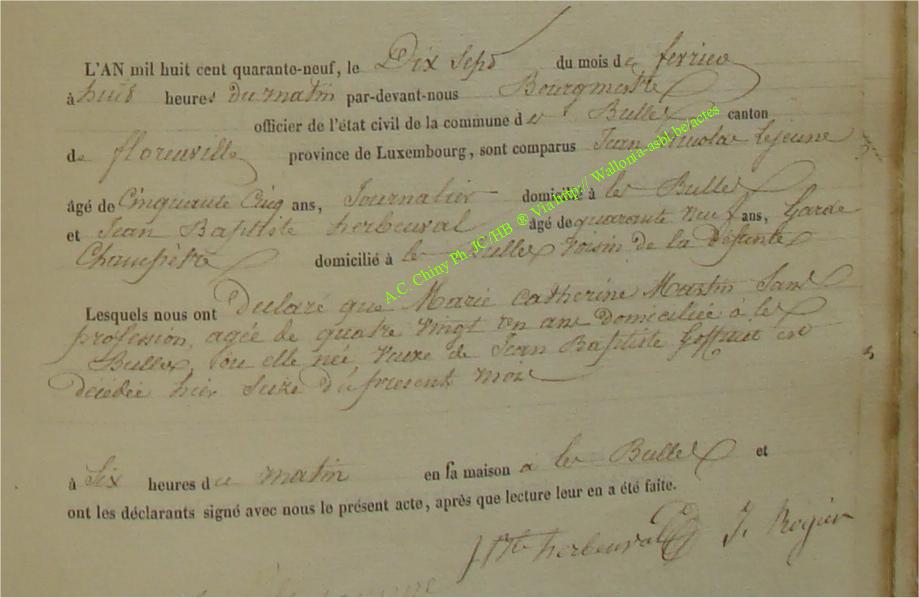 L'AN mil huit cent quarante-neuf, le Dix Sept du mois de ferrier
à huit heures du matin par-devant-nous Bourgmestre
officier de l'état civil de la commune de Bulles canton
de florenville province de Luxembourg, sont comparus Jean Nicolas Lejeune
âgé de Cinquante Cinq ans, Journalier domicilié à les Bulles
et Jean Baptiste herbeuval âgé de quarante neuf ans, Garde
Champêtre domicilié à les Bulles voisin de la Défunte
Lesquels nous ont Declaré que Marie Catherine Martin Sans
profession, agée de quatre vingt un ans Domiciliée à les
Bulles, ou elle née, veuve de Jean Baptiste Goffaut est
décédée hier Seize du présent mois
à Six heures du matin en sa maison à les Bulles et
ont les déclarants signé avec nous le présent acte, après que lecture leur en a été faite.
herbeuval J. Rogier
A.C. Chiny Ph. JC/HB ® Via http:// Wallonia-asbl.be/actes